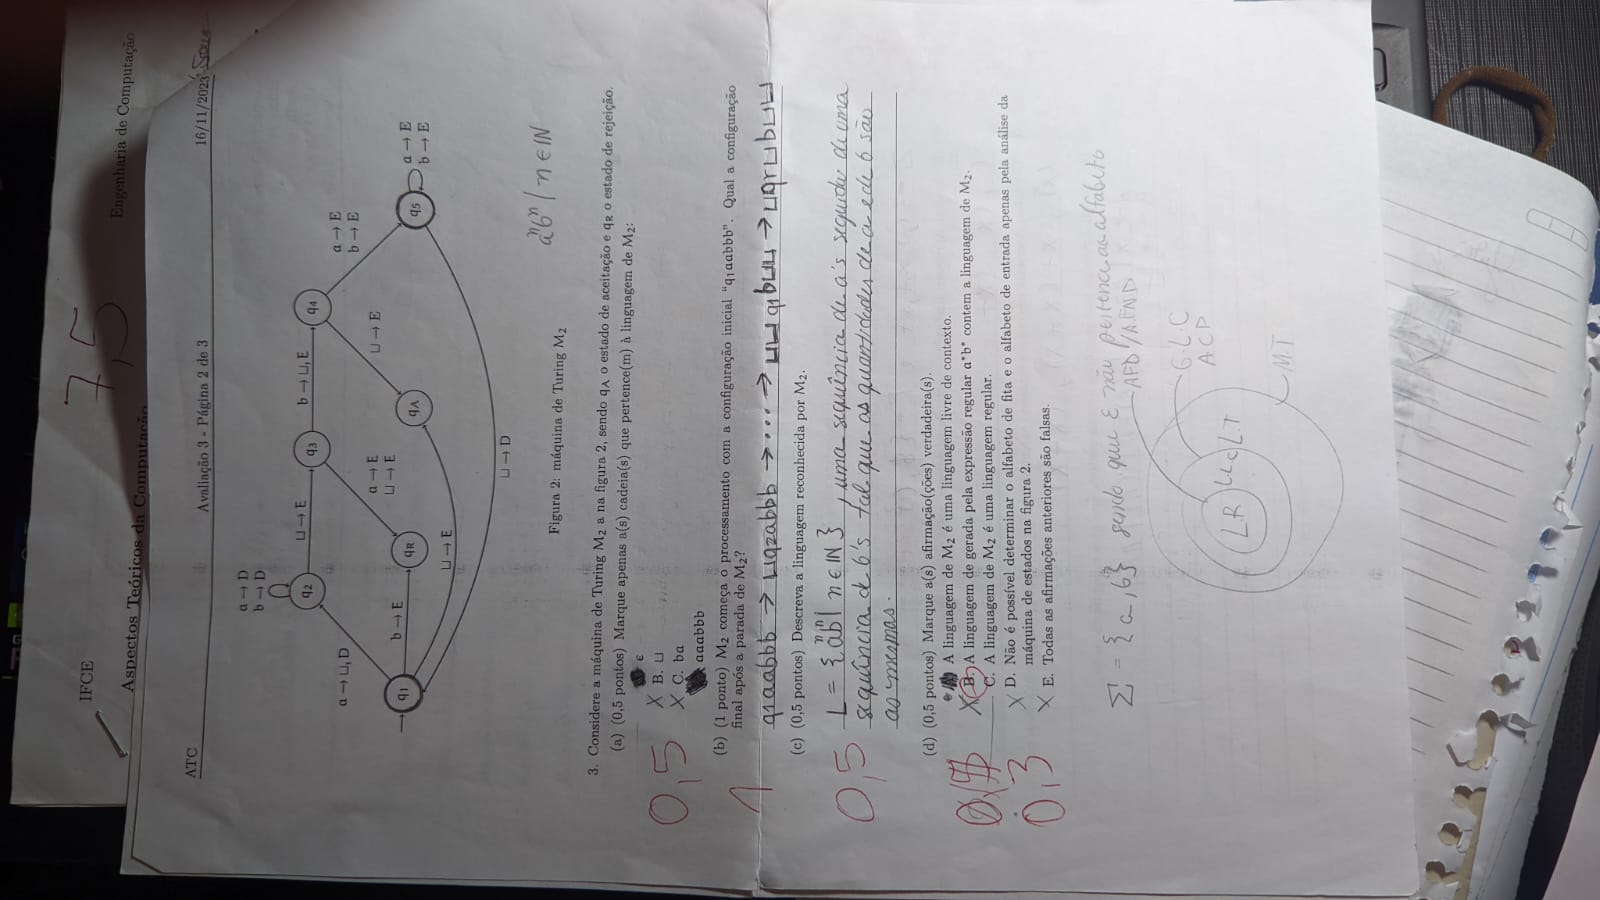 IFCE
Aspectos Teóricos da Computação
Engenharia de Computação
7,5
ATC
Avaliação 3 - Página 2 de 3
16/11/2023
a → D
b → D
a → ⊔, D
q2
⊔ → E
q3
b → ⊔, E
q4
a → E
b → E
q1
b → E
qR
a → E
⊔ → E
qA
⊔ → E
q5
a → E
b → E
⊔ → E
⊔ → D
Figura 2: máquina de Turing M2
aⁿbⁿ | n ∈ IN
3. Considere a máquina de Turing M2 a na figura 2, sendo qA o estado de aceitação e qR o estado de rejeição.
(a) (0,5 pontos) Marque apenas a(s) cadeia(s) que pertence(m) à linguagem de M2:
0,5
ε
X B. ⊔
X C. ba
aaabbb
(b) (1 ponto) M2 começa o processamento com a configuração inicial "q1aabbb". Qual a configuração
final após a parada de M2?
1
q1aabbb → ⊔q2abbb → .... → ⊔⊔q1b⊔⊔ → ⊔qr⊔b⊔⊔
(c) (0,5 pontos) Descreva a linguagem reconhecida por M2.
0,5
L = {aⁿbⁿ | n ∈ IN}, uma sequência de a's seguida de uma
sequência de b's tal que as quantidades de a e de b são
as mesmas.
(d) (0,5 pontos) Marque a(s) afirmação(ções) verdadeira(s).
0,3
A linguagem de M2 é uma linguagem livre de contexto.
X B. A linguagem de gerada pela expressão regular a*b* contem a linguagem de M2.
C. A linguagem de M2 é uma linguagem regular.
X D. Não é possível determinar o alfabeto de fita e o alfabeto de entrada apenas pela análise da
máquina de estados na figura 2.
X E. Todas as afirmações anteriores são falsas.
Σ = {a, b} sendo que ε não pertence ao alfabeto
AFD/AFND
G.L.C
ACP
M.T
LR
LLC
LT